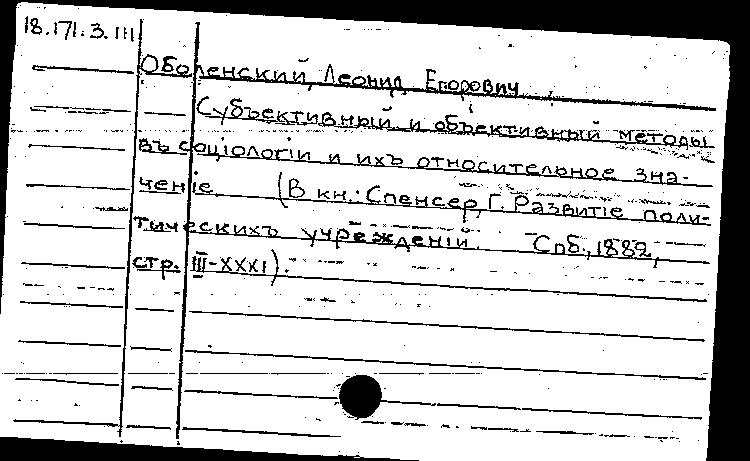 18.171.3.111
Оболенский, Леонид Егорович
Субъективный и объективный методы
въ соціологіи и ихъ относительное зна-
ченіе. (В кн.: Спенсер, Г. Развитіе поли-
тическихъ учрежденій. Спб., 1882,
стр. III-XXXI).